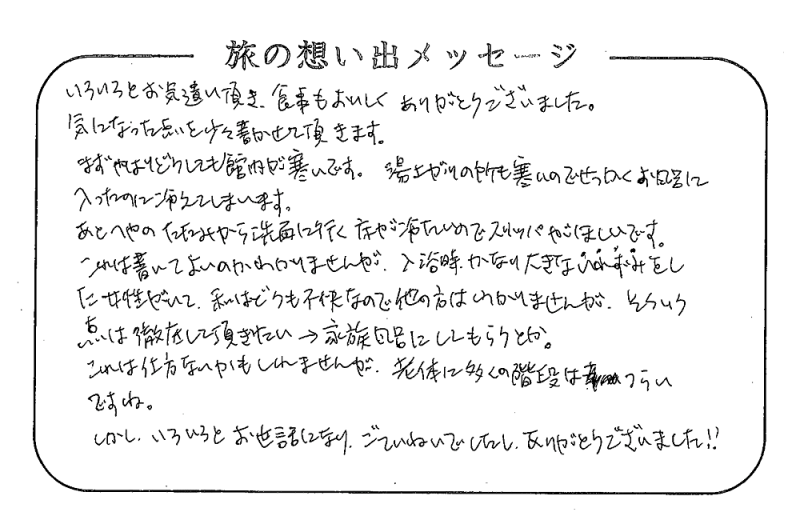 旅の想い出メッセージ
いろいろとお気遣い頂き、食事もおいしく ありがとうございました。
気になった点を少々書かせて頂きます。
まずやはりどうしても館内が寒いです。 湯上がりの所も寒いのでせっかくお風呂に
入ったのに冷えてしまいます。
あとへやのたたみから洗面に行く床が冷たいのでスリッパがほしいです。
これは書いてよいのかわかりませんが、入浴時かなり大きないれずみをし
た女性がいて、私はどうも不快なので他の方はわかりませんが、そういう
点は徹底して頂きたい → 家族風呂にしてもらうとか。
これは仕方ないかもしれませんが、老体に多くの階段は つらい
ですね。
しかし、いろいろとお世話になり、ごていねいでしたし、ありがとうございました!!